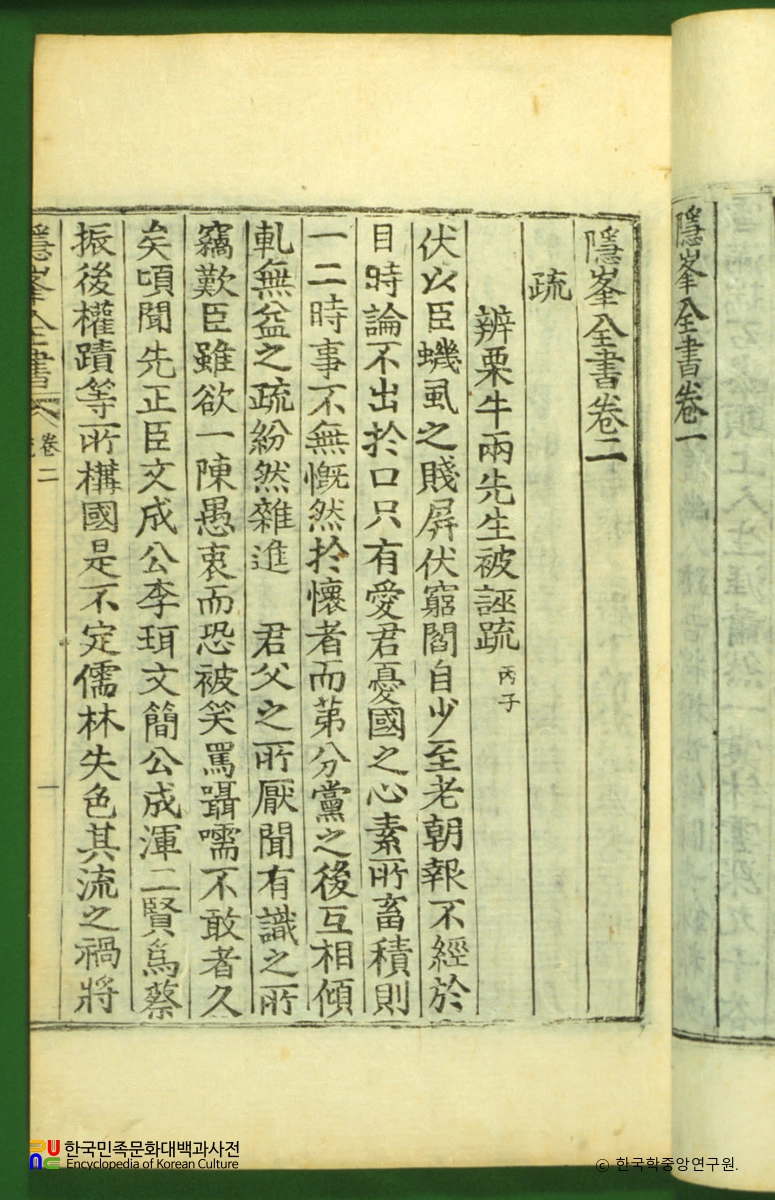 隱峯全書卷一
隱峯全書卷二
疏
辨栗牛兩先生被誣疏 丙子
伏以臣蟣虱之賤屛伏窮閻自少至老朝報不經於
目時論不出於口只有愛君憂國之心素所畜積則
一二時事不無慨然於懷者而第分黨之後互相傾
軋無益之疏紛然雜進 君父之所厭聞有識之所
竊歎臣雖欲一陳愚衷而恐被笑罵囁嚅不敢者久
矣頃聞先正臣文成公李珥文簡公成渾二賢爲蔡
振後權蹟等所構國是不定儒林失色其流之禍將
隱峯全書
卷二
一
한국민족문화대백과사전
Encyclopedia of Korean Culture
© 한국학중앙연구원.